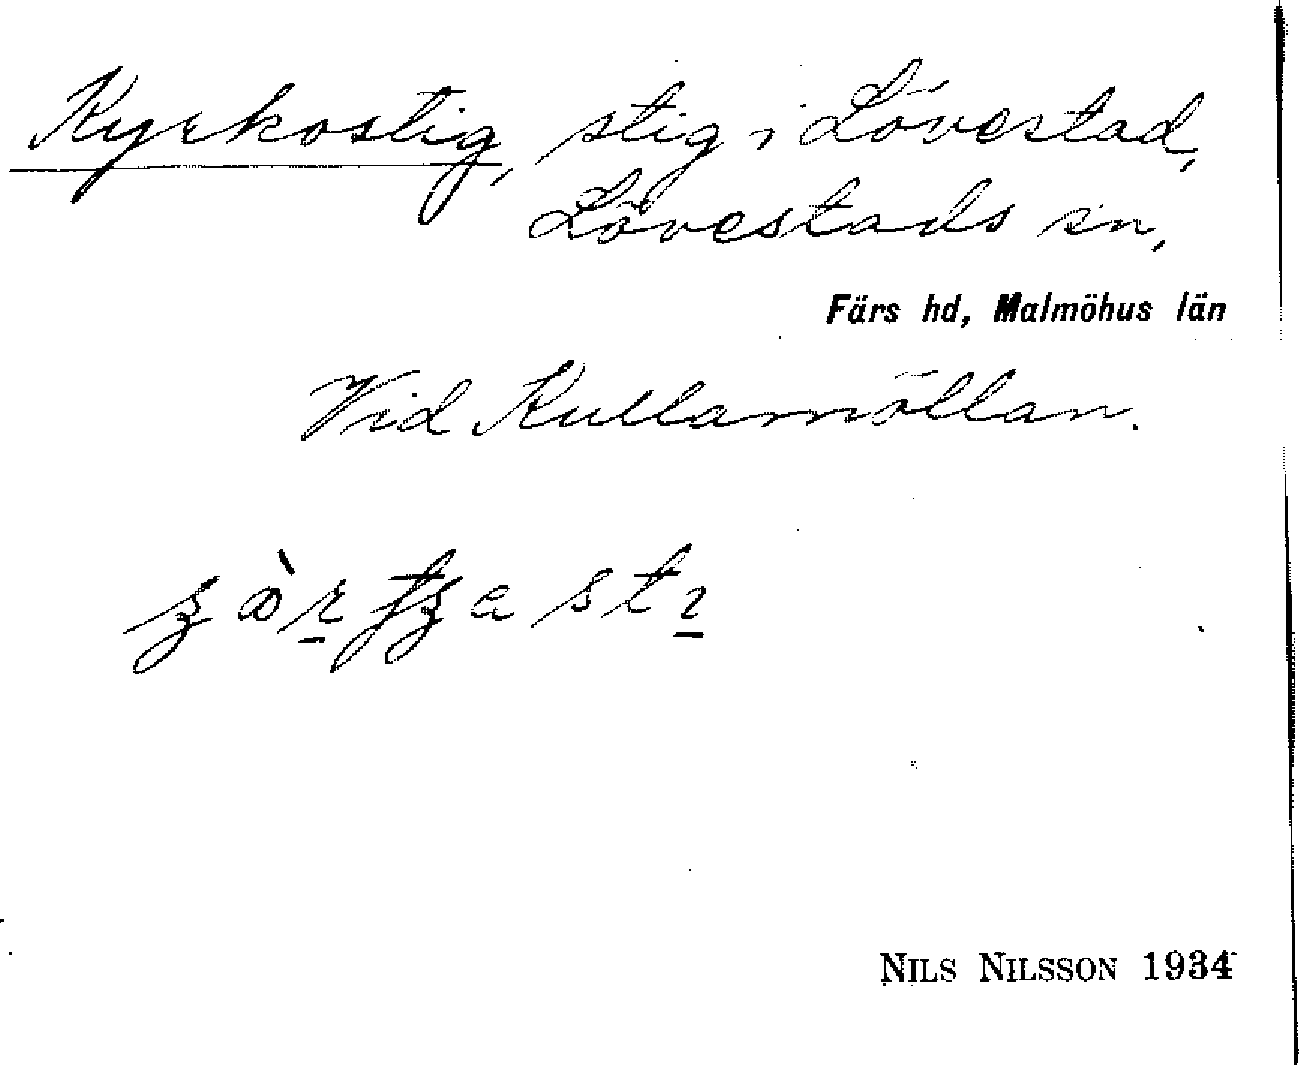 Kyrkostig, stig i Lövestad,
Lövestads sn,
Färs hd, Malmöhus län
Vid Kullamöllan.
NILS NILSSON 1934